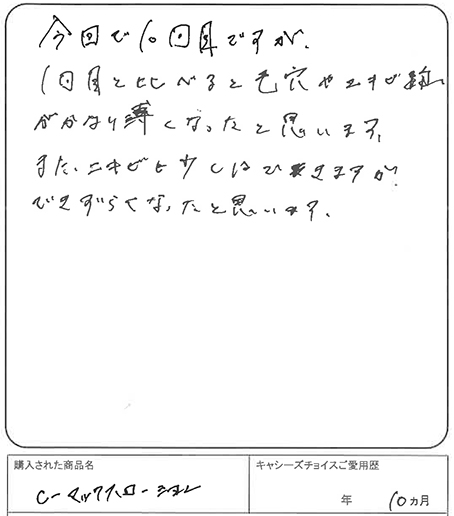 今回で10回目ですが、
1回目と比べると毛穴やニキビ跡
がかなり薄くなったと思います。
また、ニキビも少しはできますが、
できずらくなったと思います。
購入された商品名
キャシーズチョイスご愛用歴
C-マックスローション
年 10ヵ月